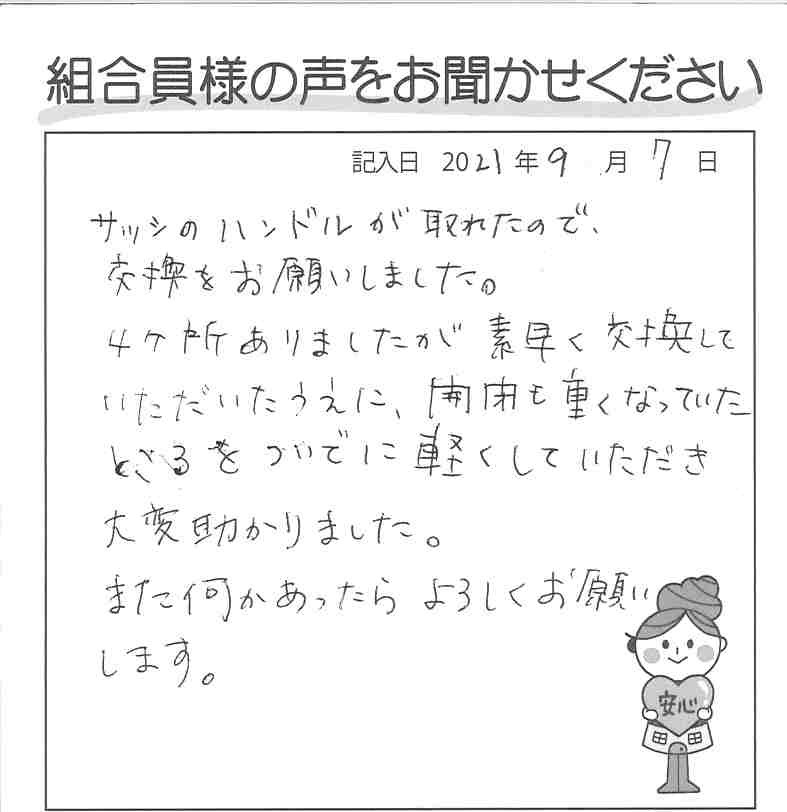 組合員様の声をお聞かせください
記入日 2021年9月7日
サッシのハンドルが取れたので、
交換をお願いしました。
4ケ所ありましたが素早く交換して
いただいたうえに、開閉も重くなっていた
ところをついでに軽くしていただき
大変助かりました。
また何かあったらよろしくお願い
します。
安心